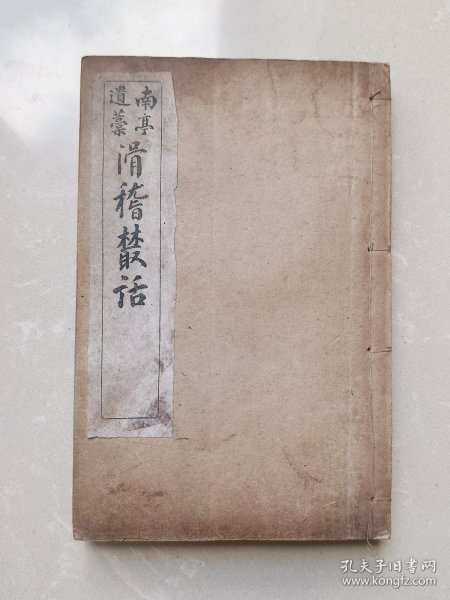 南亭
遺藁
滑稽叢話
孔夫子旧书网
www.kongfz.com